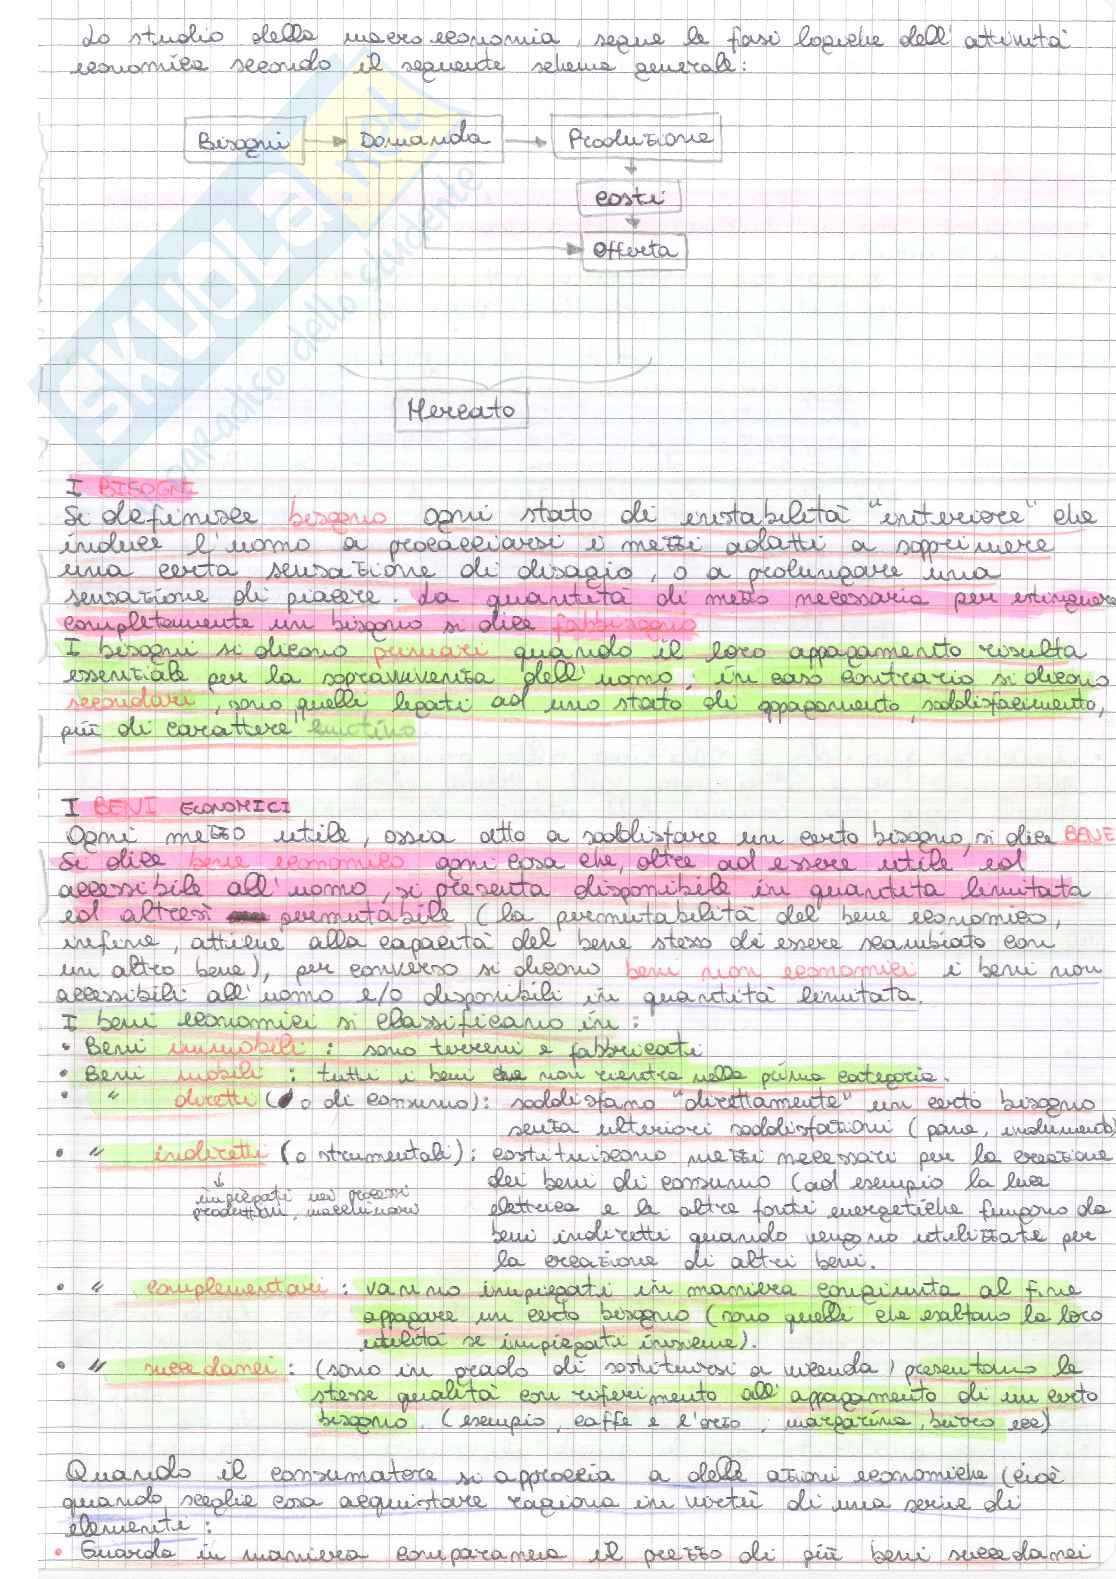 Lo studio della macroeconomia, segue le fasi logiche dell'attività
economica secondo il seguente schema generale:
Bisogni
Domanda
Produzione
costi
Offerta
Mercato
SKUOLA.net
paradiso dello studente
I BISOGNI
Si definisce bisogno ogni stato di instabilità "interiore" che
induce l'uomo a procacciarsi i mezzi adatti a sopprimere
una certa sensazione di disagio, o a prolungare una
sensazione di piacere. La quantità di mezzo necessaria per estinguere
completamente un bisogno si dice fabbisogno
I bisogni si dicono primari quando il loro appagamento risulta
essenziale per la sopravvivenza dell'uomo; in caso contrario si dicono
secondari, sono quelli legati ad uno stato di appagamento, soddisfacimento,
più di carattere emotivo
I BENI ECONOMICI
Ogni mezzo utile, ossia atto a soddisfare un certo bisogno, si dice BENE
Si dice bene economico ogni cosa che, oltre ad essere utile ed
accessibile all'uomo, si presenta disponibile in quantità limitata
ed altresì permutabile (la permutabilità del bene economico,
infine, attiene alla capacità del bene stesso di essere scambiato con
un altro bene), per converso si dicono beni non economici i beni non
accessibili all'uomo e/o disponibili in quantità limitata.
I beni economici si classificano in:
• Beni immobili: sono terreni e fabbricati
• Beni mobili: tutti i beni che non rientra nella prima categoria.
• " diretti (o di consumo): soddisfano "direttamente" un certo bisogno
senza ulteriori soddisfazioni (pane, indumenti)
• " indiretti (o strumentali): costituiscono mezzi necessari per la creazione
dei beni di consumo (ad esempio la luce
impiegati nei processi
produttivi, macchinari
elettrica e la altre fonti energetiche fungono da
beni indiretti quando vengono utilizzate per
la creazione di altri beni.
• " complementari: vanno impiegati in maniera congiunta al fine
appagare un certo bisogno (sono quelli che esaltano la loro
utilità se impiegati insieme).
• " succedanei: (sono in grado di sostituirsi a vicenda) presentano le
stesse qualità con riferimento all'appagamento di un certo
bisogno. (esempio, caffe e l'orzo, margarina, burro ecc)
Quando il consumatore si approccia a delle azioni economiche (cioè
quando sceglie cosa acquistare ragiona in virtù di una serie di
elementi:
• Guarda in maniera comparanea il prezzo di più beni succedanei